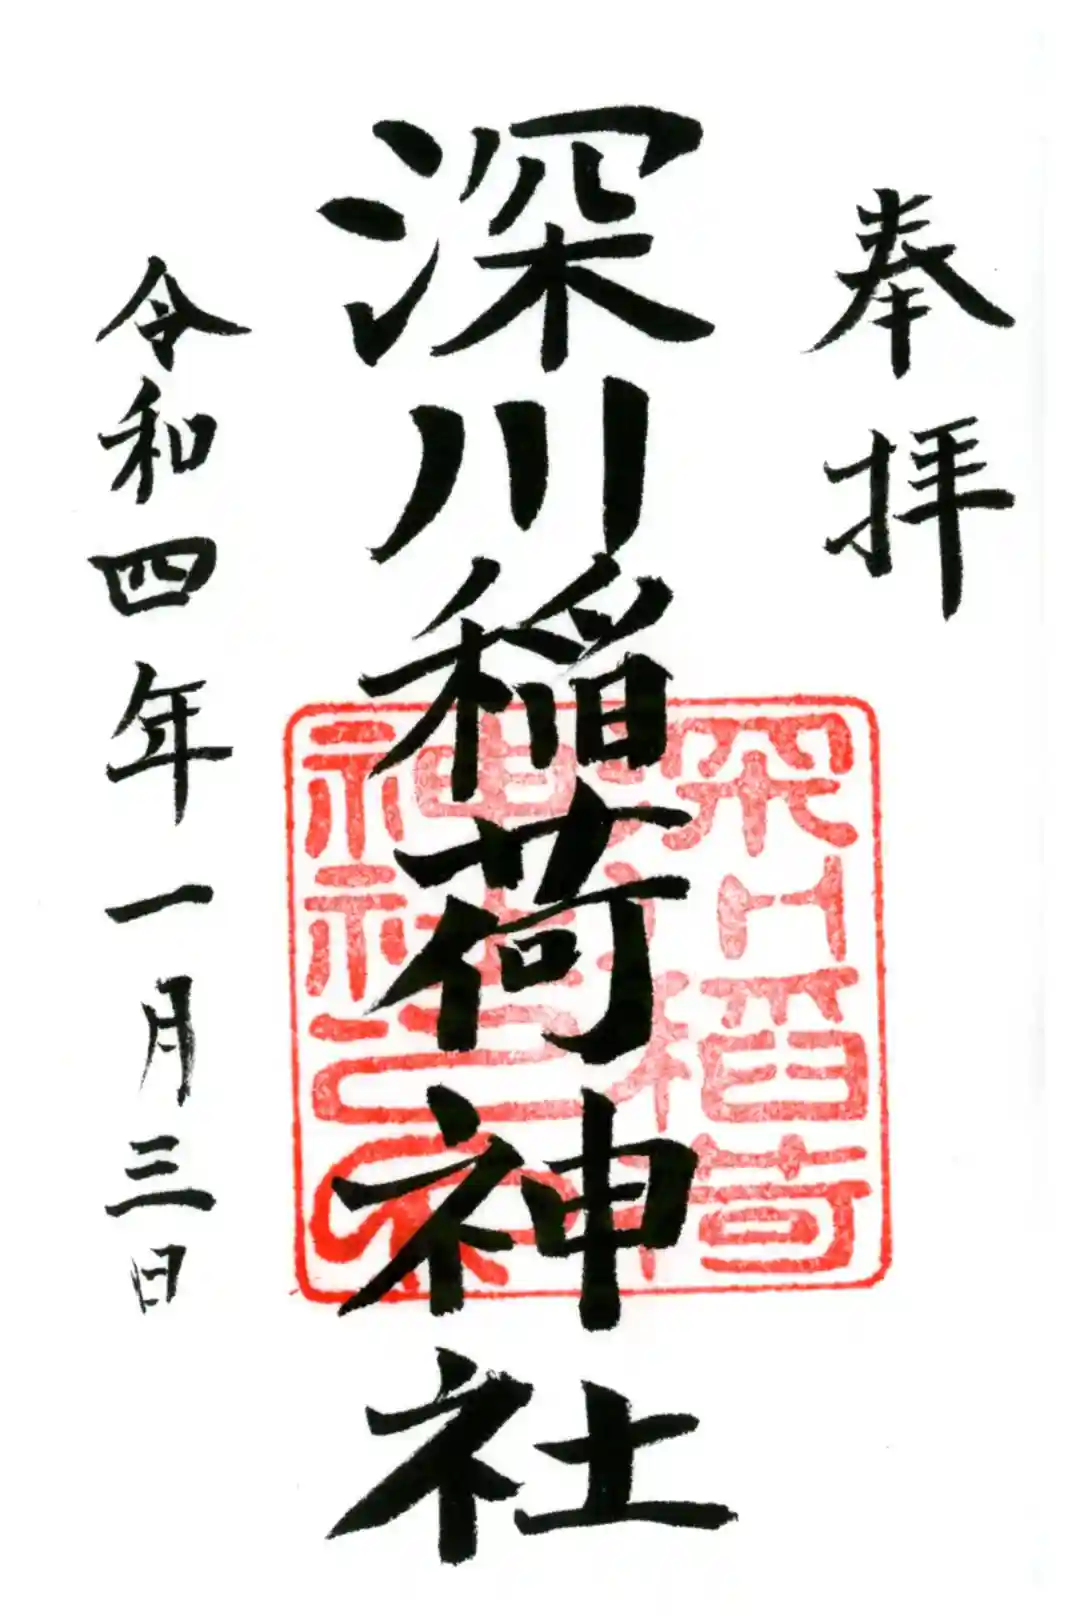 奉拝
深川稲荷神社
令和四年一月三日
深川稲荷
神社之印